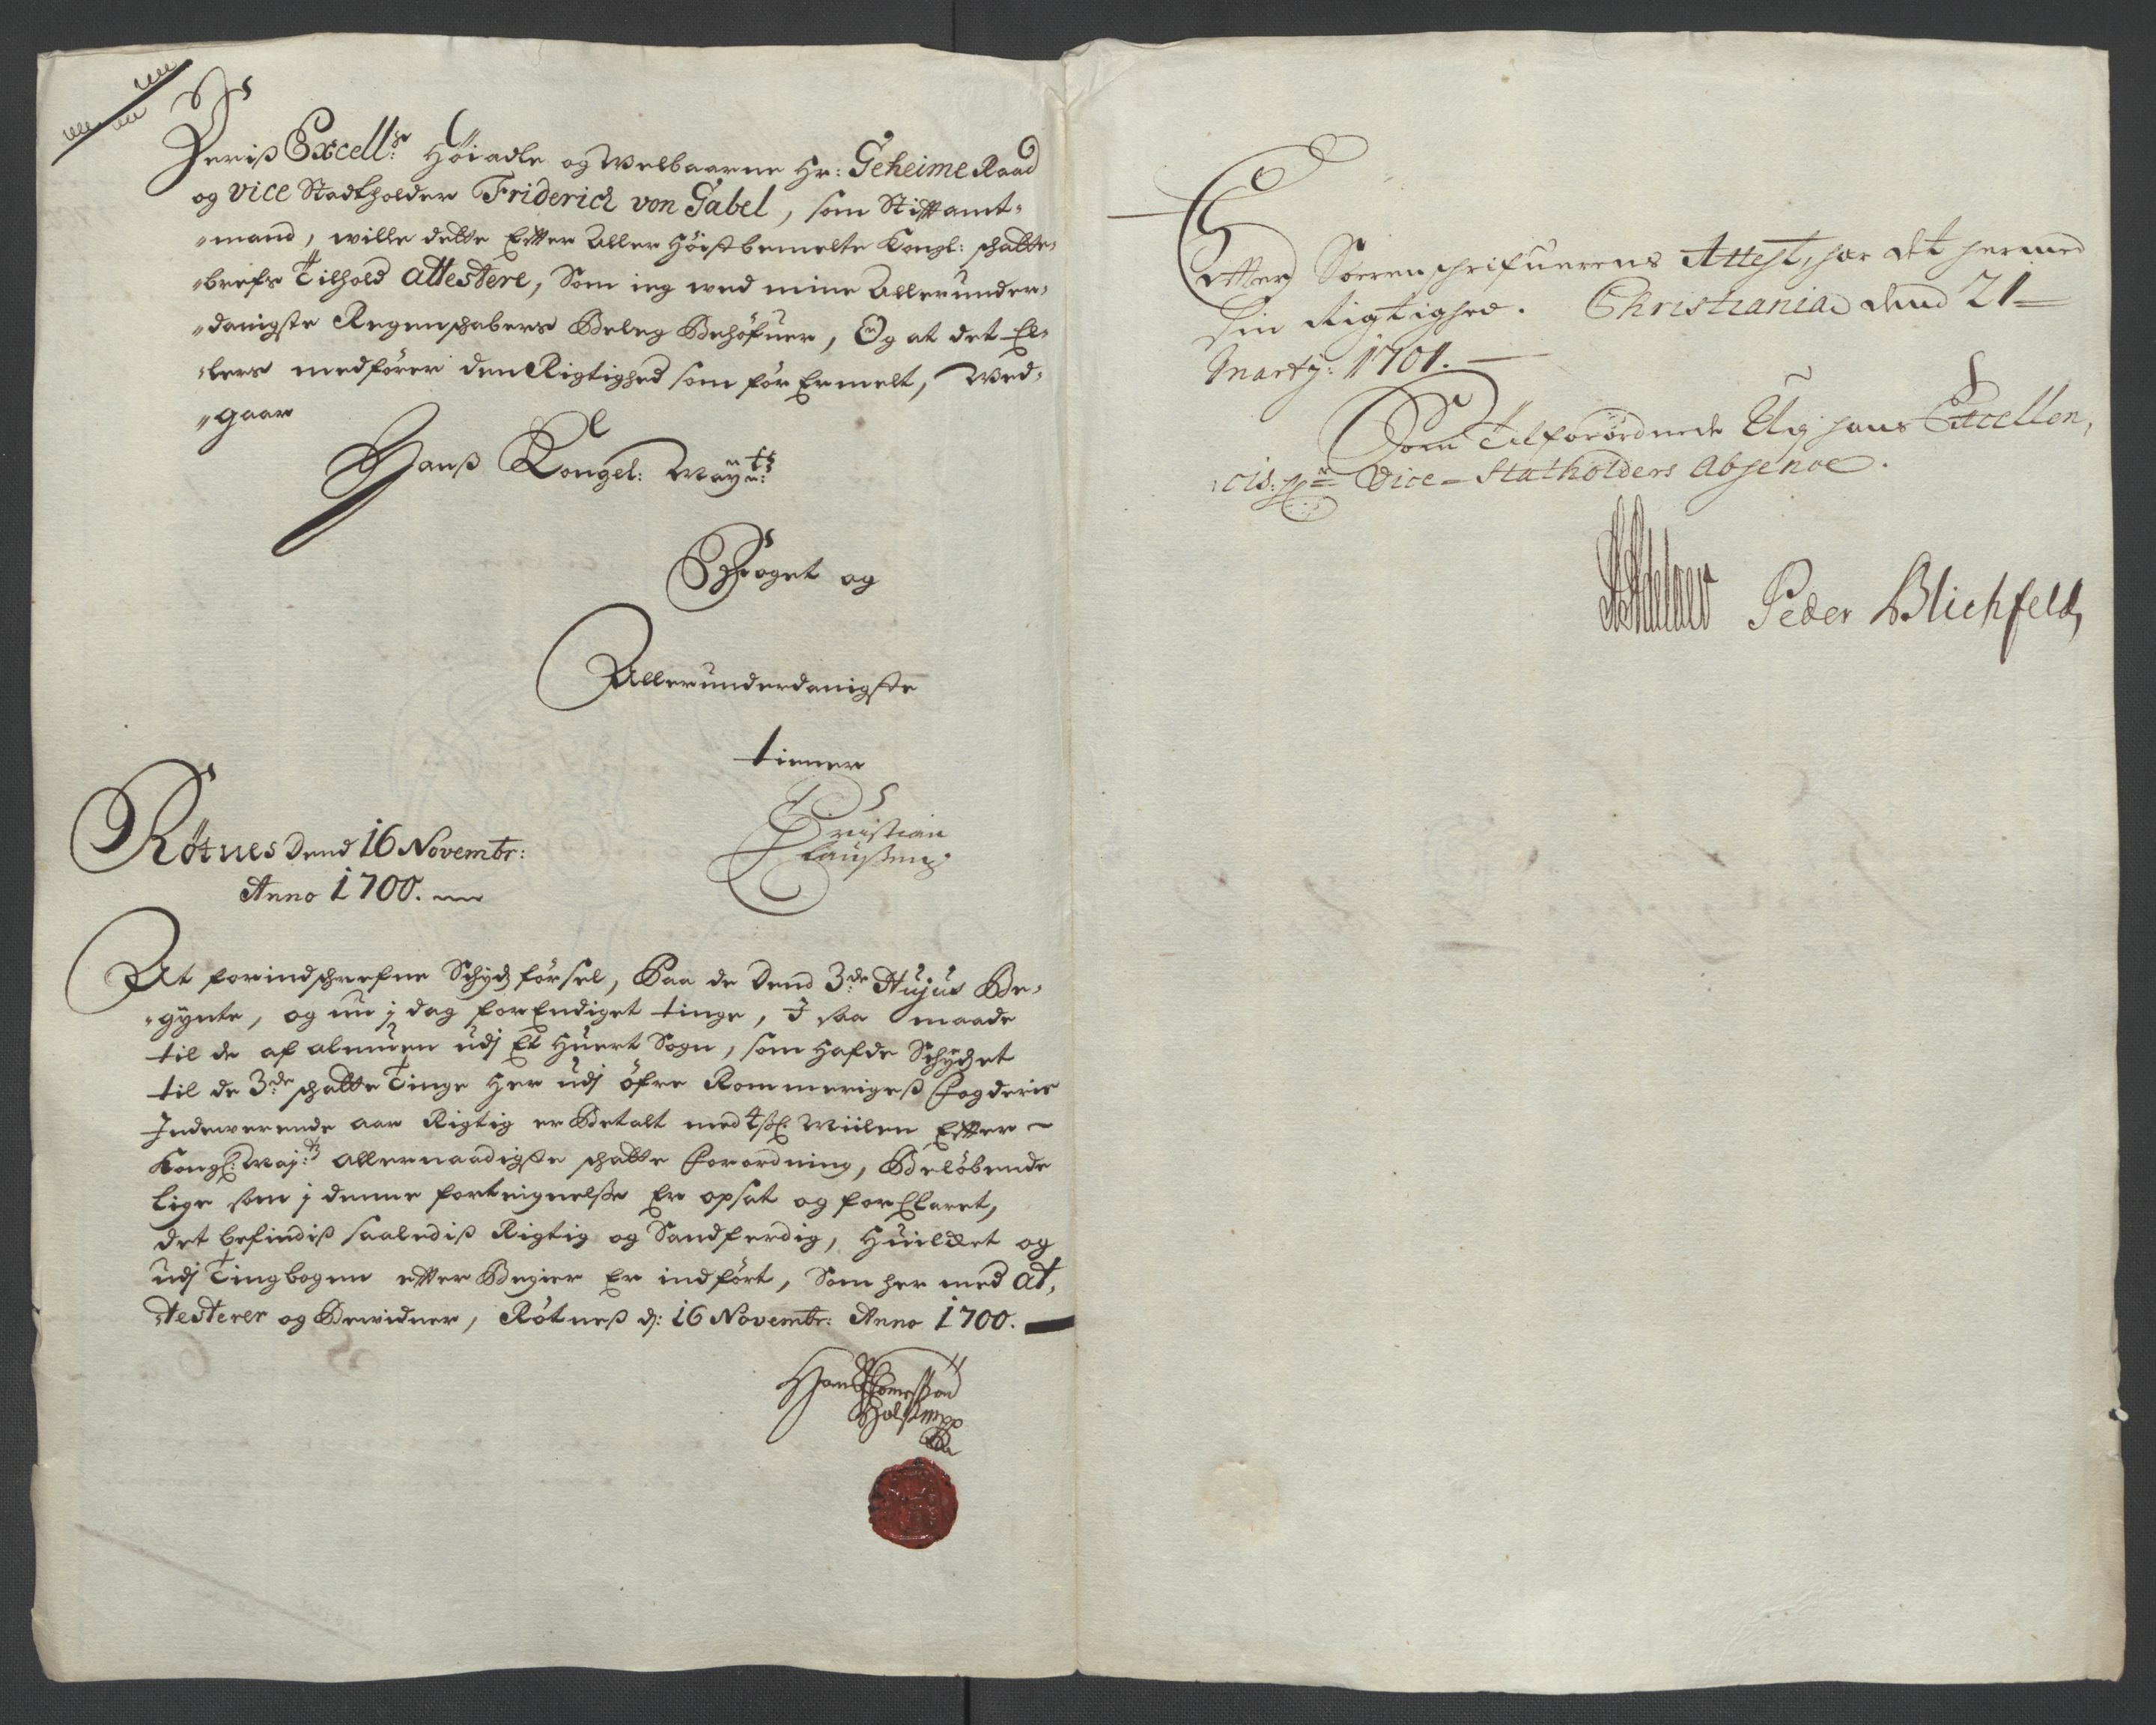 Heriß Excell:ce Höiædle og Welbaarne Hr: Geheime Raad
og Vice Stadtholder Friderich von Gabel, som Stifftamt-
mand, wille dette Effter Aller Höistbemelte Kongl: schatte-
brefs Tilhold attestere, Som ieg wed mine Allerunder-
danigste Regenschabers Beleg Behöfuer, Og at det El-
lers medförer den Rigtighed som för Ermelt, Wed-
gaar
Hanß Kongel: May:ts
Froget og
Allerunderdanigste
tienner
Christian
Claußen
Rötnes Dend 16 Novembr:
Anno 1700.
At forindschrefne Schydtzförsel, Paa de Dend 3de Hujus Be-
gynte, og nu j dag forEndiget tinge, I saa maade
til de af almuen udj Et Huert Sogn, som Hafde Schydtzet
til de 3de schatte Tinge Her udj öfre Rommerigeß Fogderie
Indewerende aar Rigtig er Betalt med 4 sk: Miilen Effter
Kongl: Maj:ts allernaadigste schatte Forordning, Belöbende
lige som j denne forteignelße Er opsat og forElaret,
det befindiß saalediß Rigtig og Sandferdig, Huilcket og
udj Tingbogen effter Begier Er indfört, Som her med at-
testerer og Bewidner, Rötneß d: 16 Novembr: Anno 1700.
Hans
Effter Sorenschrifuerens Attest, har det hermed
sin Rigtighed. Christiania dend 21
Marty: 1701.
Som Tilforordnede Udj hans Excellen-
cis: Hr Vice-Statholders Absence.
Peder Blichfeld